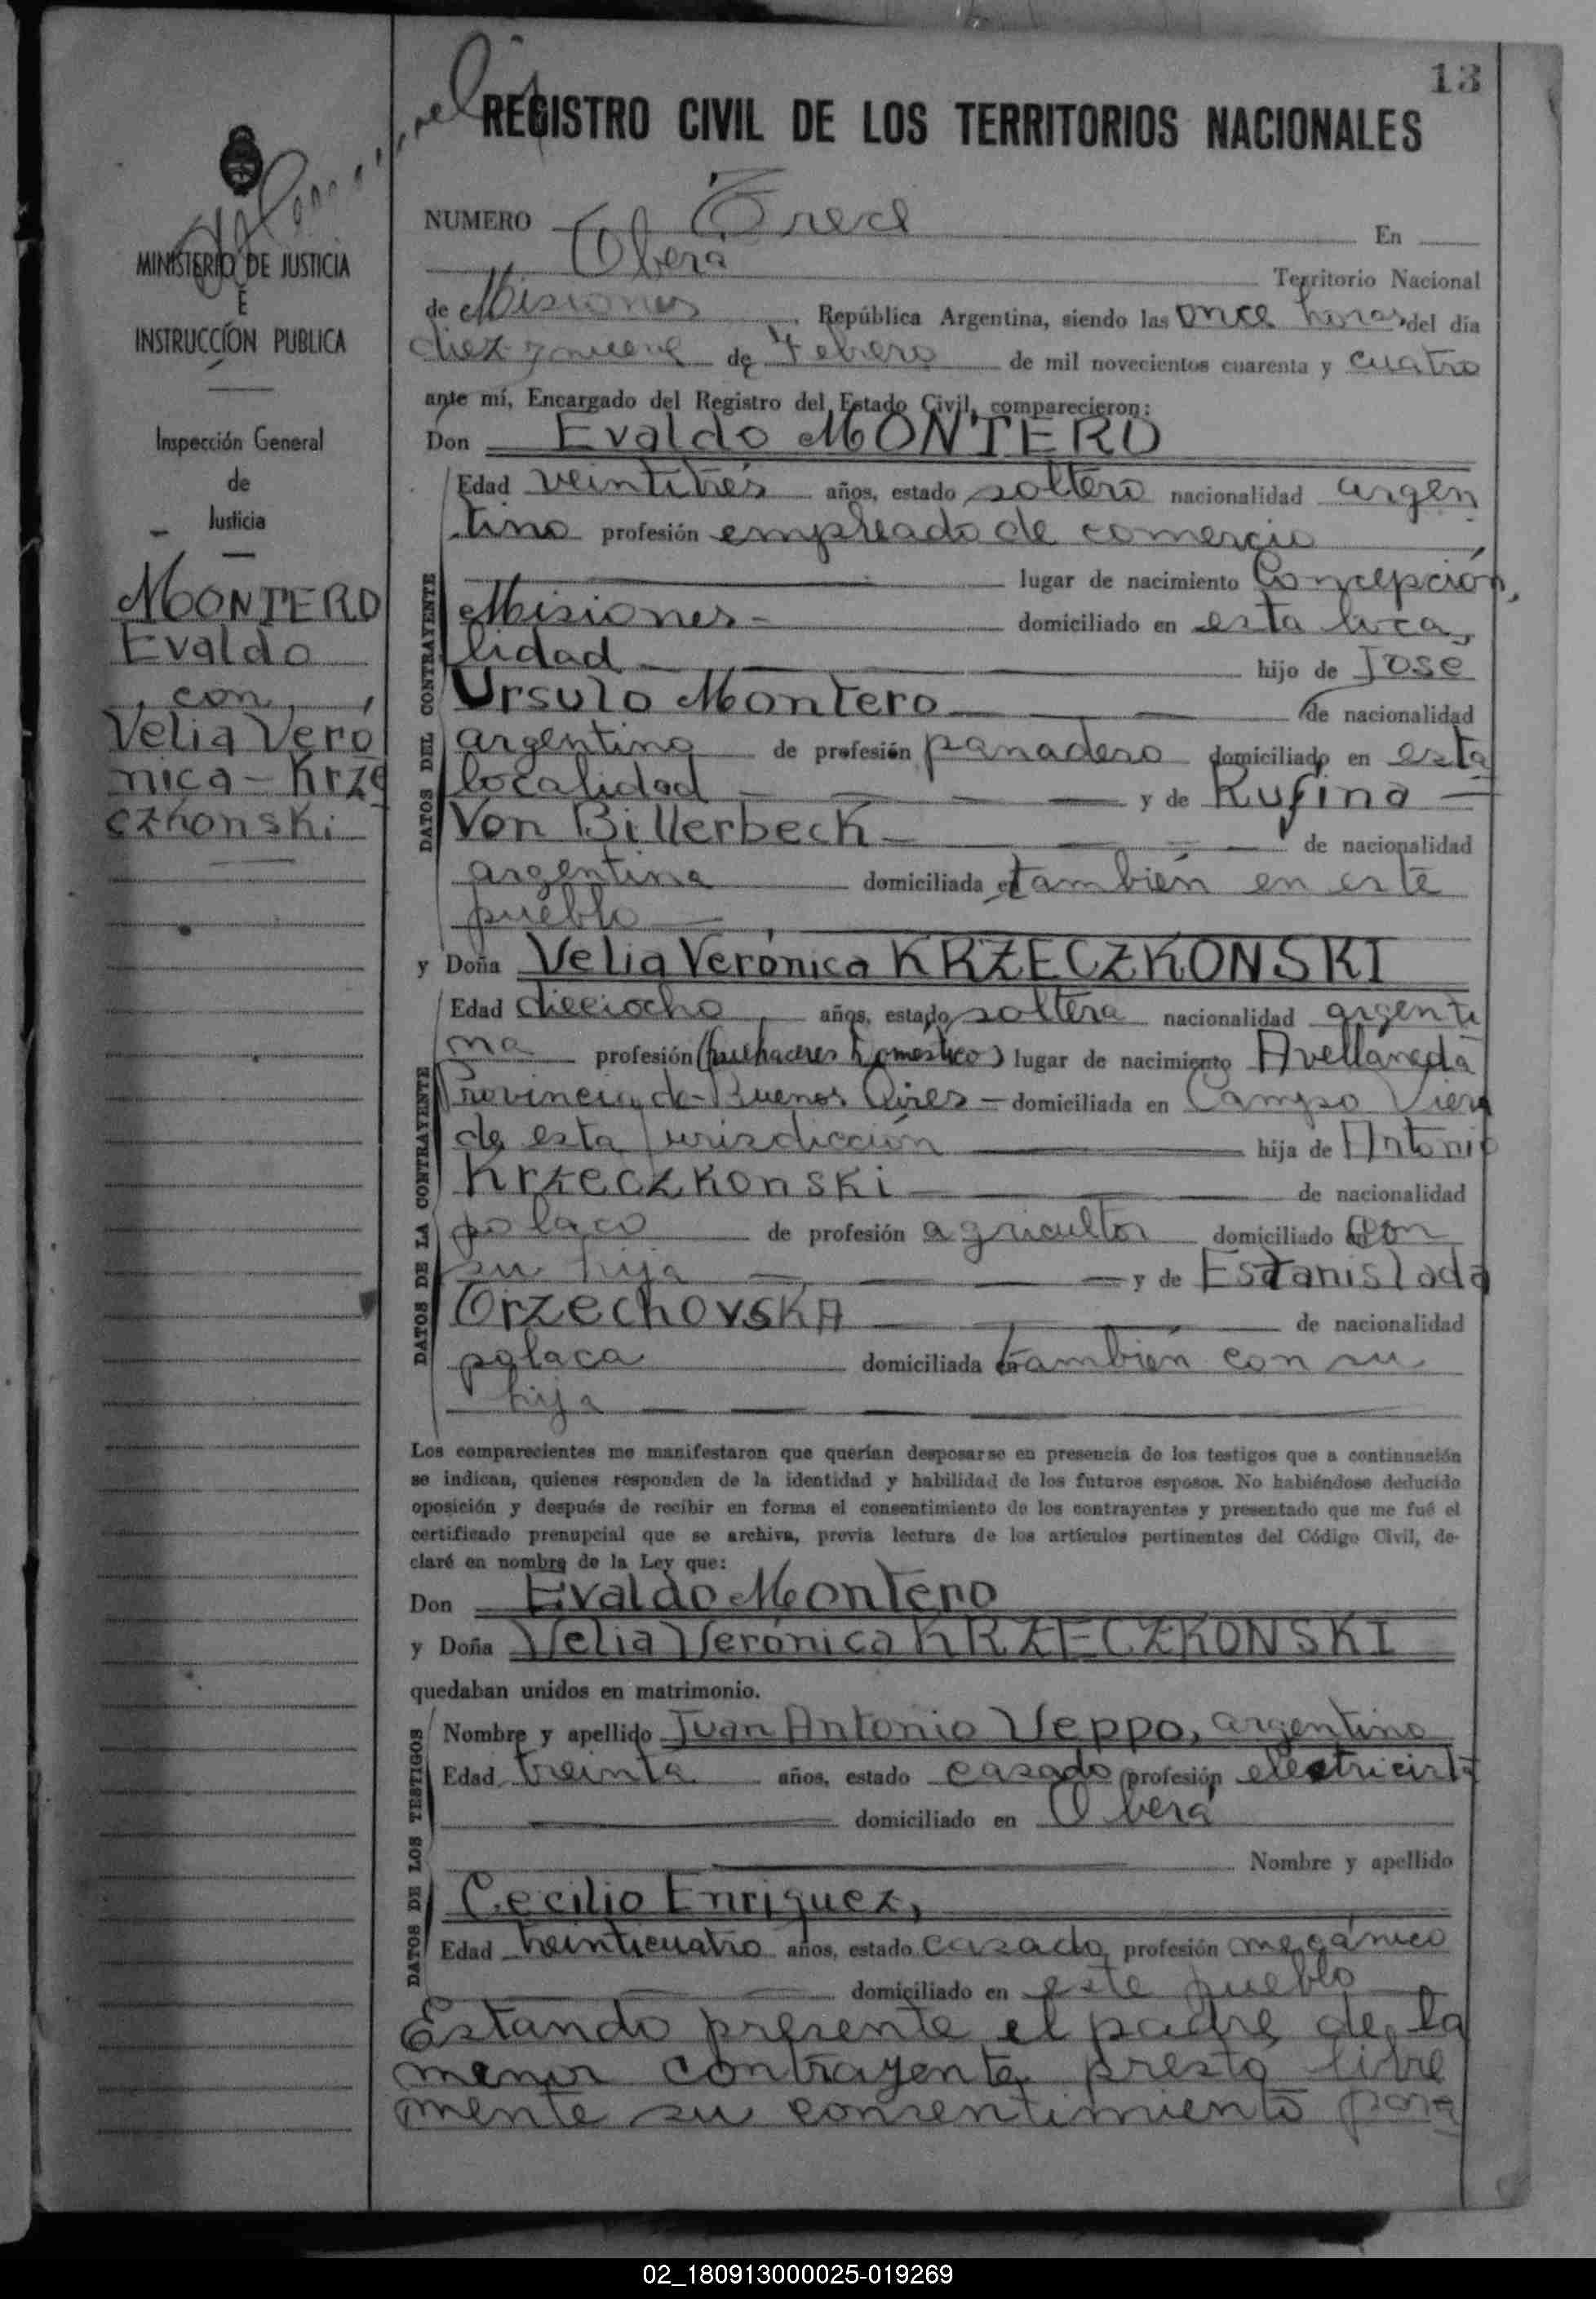 13
REGISTRO CIVIL DE LOS TERRITORIOS NACIONALES
MINISTERIO DE JUSTICIA
E
INSTRUCCIÓN PUBLICA
Inspección General
de
Justicia
MONTERO
Evaldo
con
Velia Veró
nica - Krze
czkonski
NUMERO Trece En
Oberá Territorio Nacional
de Misiones, República Argentina, siendo las once horas del día
diez y nueve de Febrero de mil novecientos cuarenta y cuatro
ante mí, Encargado del Registro del Estado Civil, comparecieron:
Don Evaldo MONTERO
DATOS DEL CONTRAYENTE
Edad veintitrés años, estado soltero nacionalidad argen
tino profesión empleado de comercio
lugar de nacimiento Concepción,
Misiones - domiciliado en esta loca
lidad hijo de José
Ursulo Montero de nacionalidad
argentino de profesión panadero domiciliado en esta
localidad y de Rufina
Von Billerbeck de nacionalidad
argentina domiciliada en también en este
pueblo
y Doña Velia Verónica KRZECZKONSKI
DATOS DE LA CONTRAYENTE
Edad dieciocho años, estado soltera nacionalidad argenti
na profesión (quehaceres domestico) lugar de nacimiento Avellaneda
Provincia de Buenos Aires - domiciliada en Campo Viera
de esta jurisdicción hija de Antonio
Krzeczkonski de nacionalidad
polaco de profesión agricultor domiciliado con
su hija y de Estanislada
OrzechovskA de nacionalidad
polaca domiciliada en también con su
hija
Los comparecientes me manifestaron que querían desposarse en presencia de los testigos que a continuación
se indican, quienes responden de la identidad y habilidad de los futuros esposos. No habiéndose deducido
oposición y después de recibir en forma el consentimiento de los contrayentes y presentado que me fué el
certificado prenupcial que se archiva, previa lectura de los artículos pertinentes del Código Civil, de-
claré en nombre de la Ley que:
Don Evaldo Montero
y Doña Velia Verónica KRZECZKONSKI
quedaban unidos en matrimonio.
DATOS DE LOS TESTIGOS
Nombre y apellido Juan Antonio Veppo, argentino
Edad treinta años, estado casado profesión electricista
domiciliado en Oberá
Nombre y apellido
Cecilio Enriquez,
Edad treinticuatro años, estado casado profesión mecánico
domiciliado en este pueblo
Estando presente el padre de la
menor contrayente prestó libre
mente su consentimiento para
02_180913000025-019269